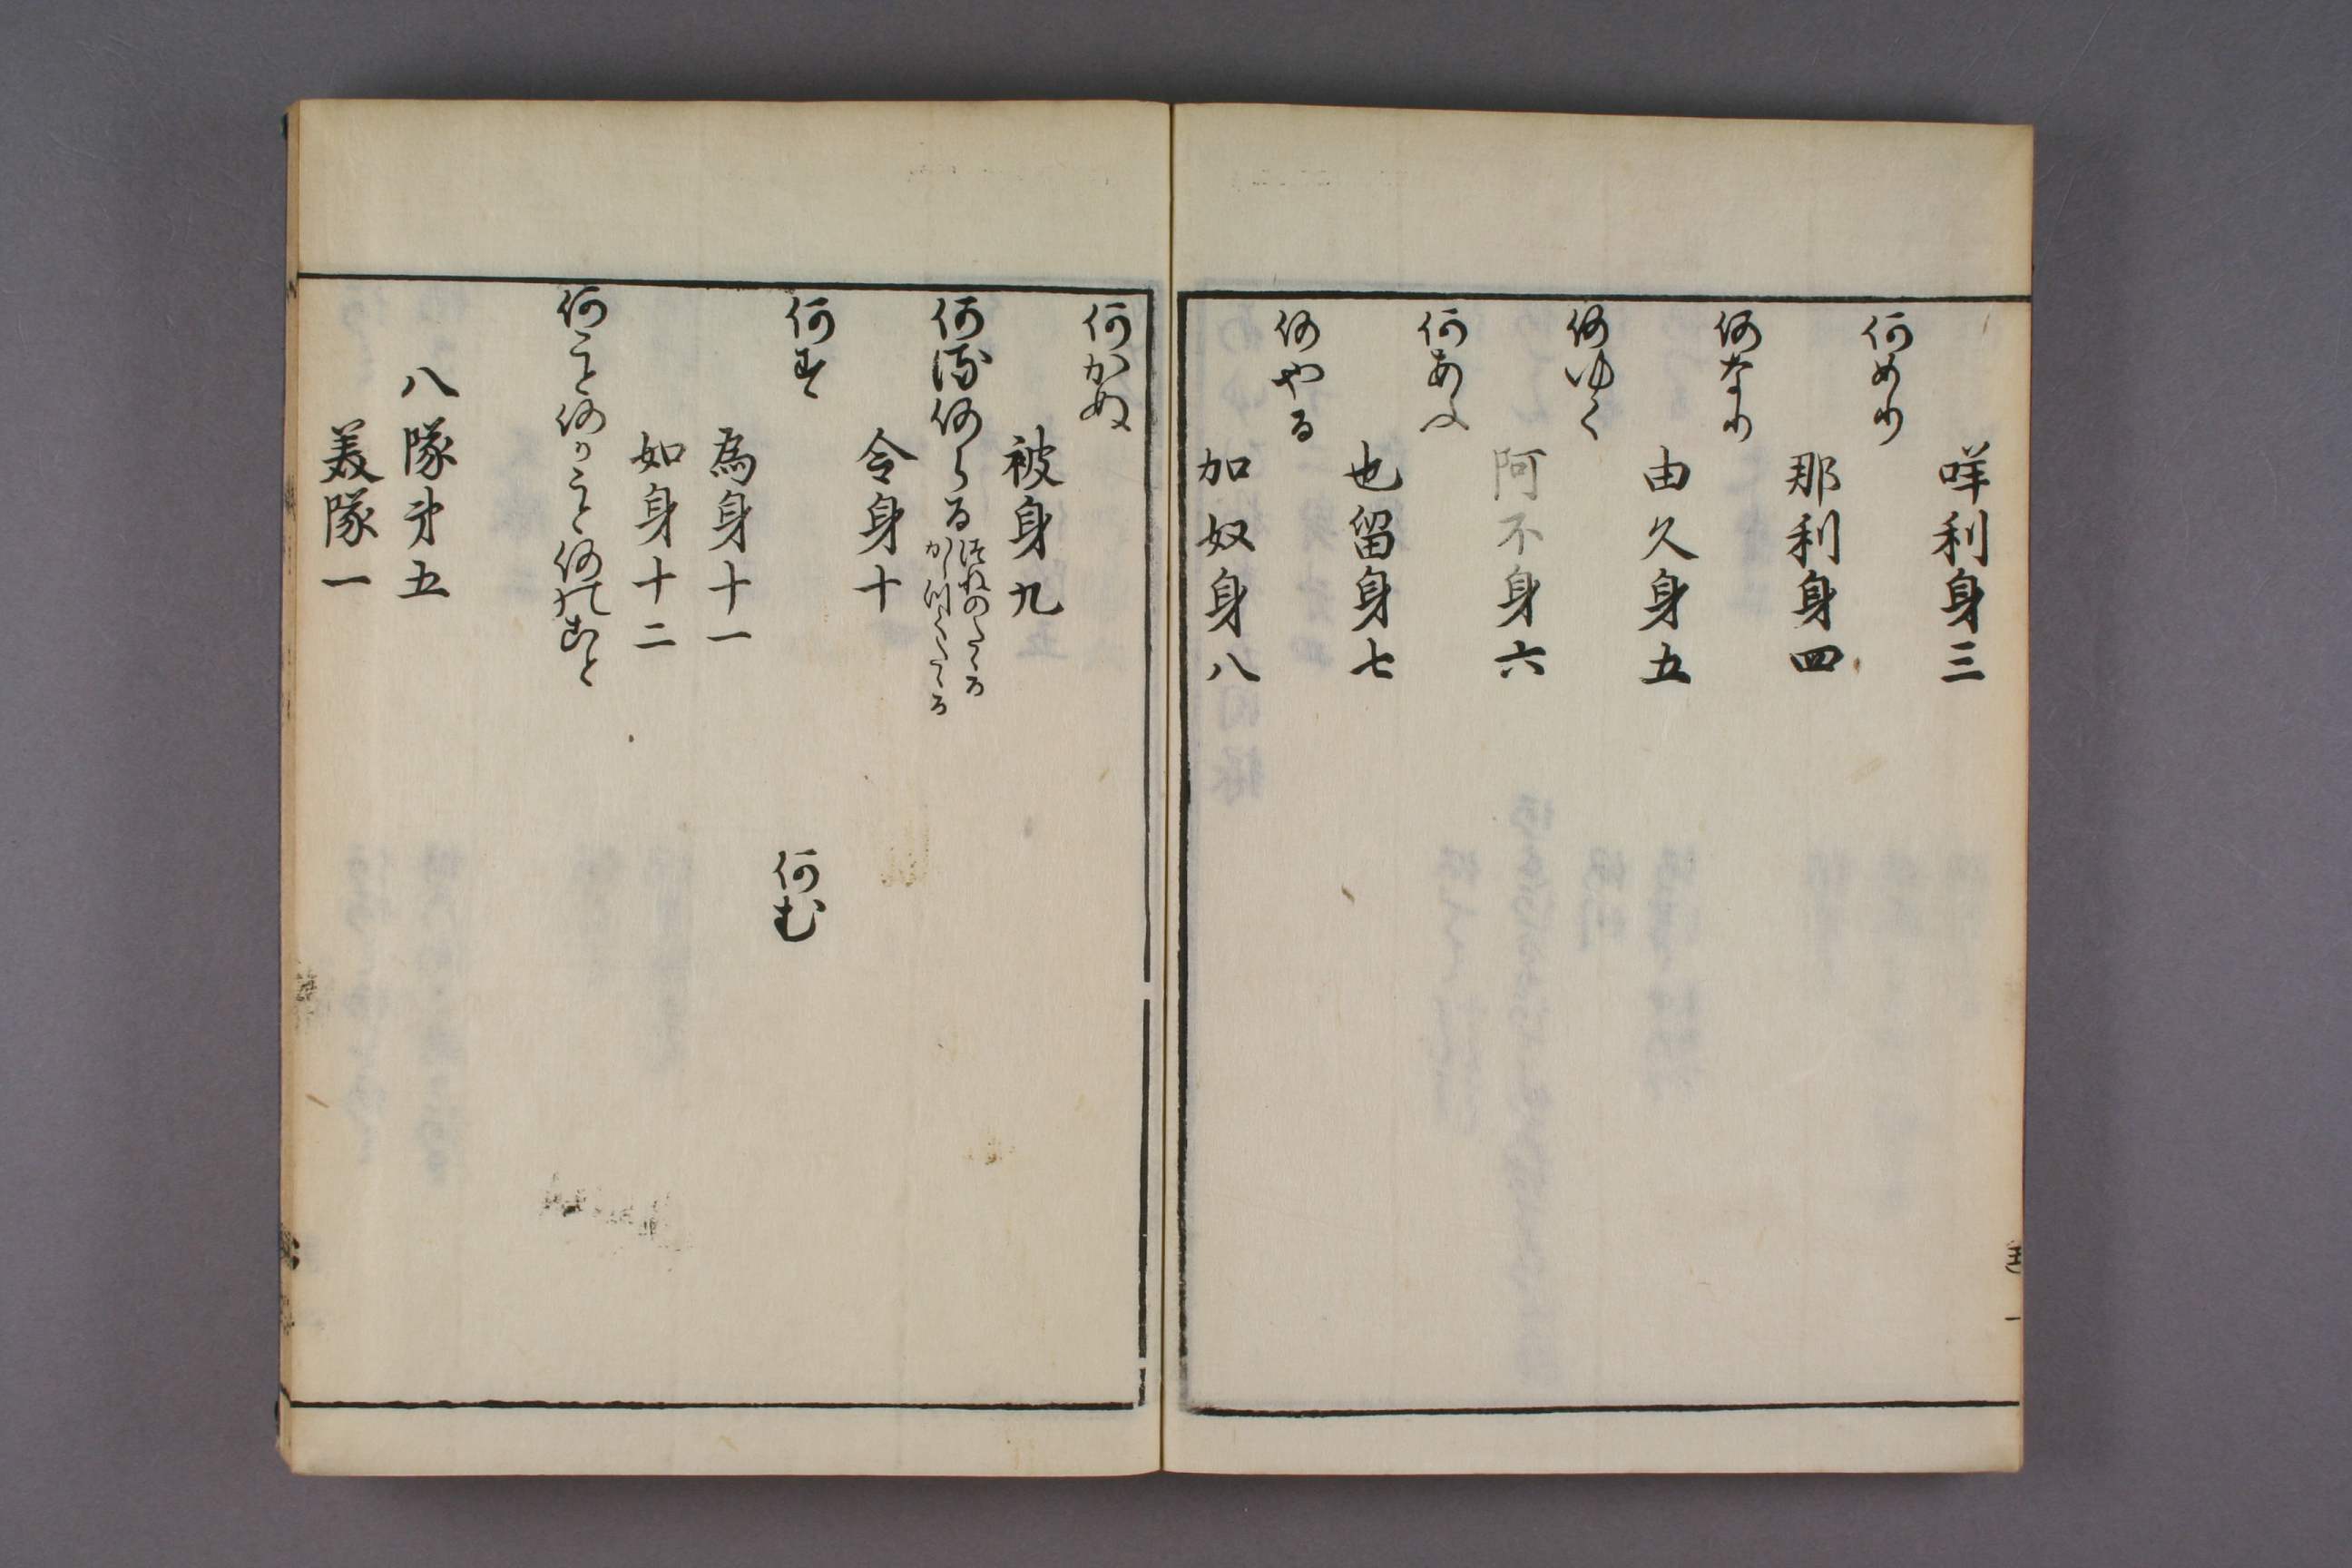 咩利身三
何めり
那利身四
何なり
由久身五
何ゆく
阿不身六
何あふ
也留身七
何やる
加奴身八
何かぬ
被身九
何る何らる
令身十
何す
何む
為身十一
如身十二
何こと何かこと何のこと
八隊第五
美隊一